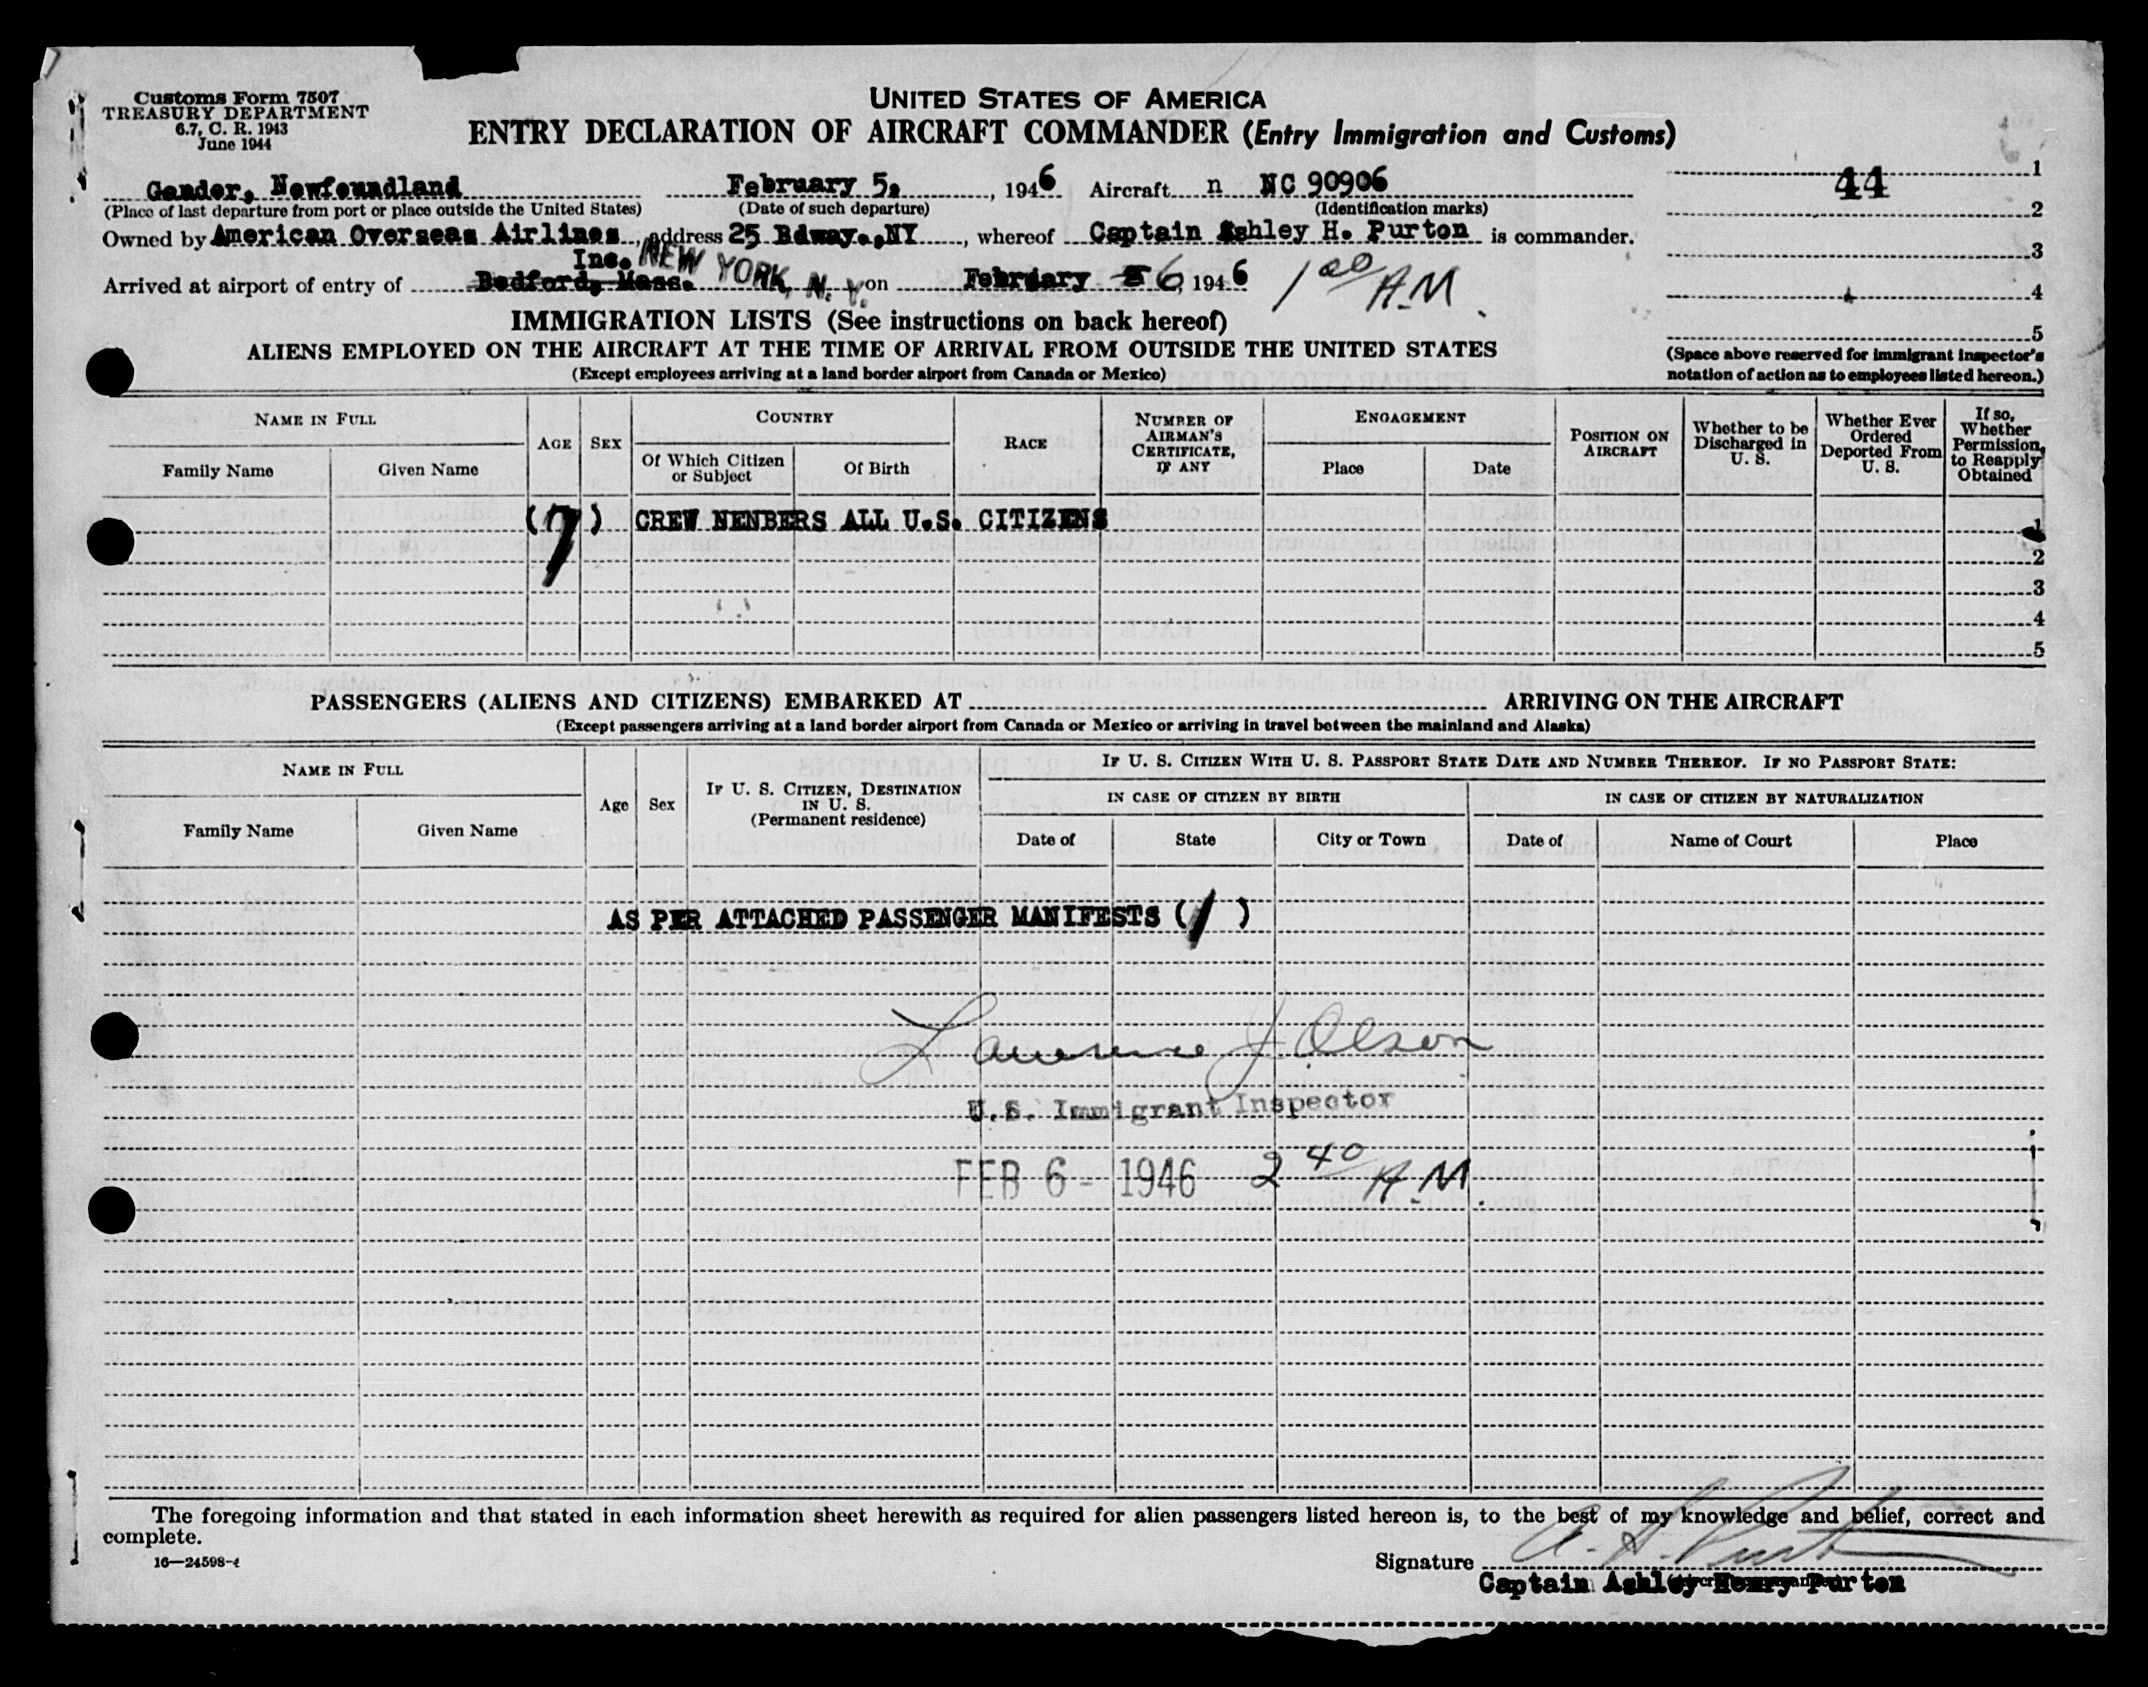 Customs Form 7507
TREASURY DEPARTMENT
6.7, C. R. 1943
June 1944
UNITED STATES OF AMERICA
ENTRY DECLARATION OF AIRCRAFT COMMANDER (Entry Immigration and Customs)
Gander, Newfoundland February 5, 1946 Aircraft n NC 90906
(Place of last departure from port or place outside the United States) (Date of such departure) (Identification marks)
Owned by American Overseas Airlines, address 25 Bdway., NY, whereof Captain Ashley H. Purton is commander.
Inc. NEW YORK, N.Y.
Arrived at airport of entry of Bedford, Mass. on February 5 6, 1946 1 00 A.M.
44
1
2
3
4
5
(Space above reserved for immigrant inspector's
notation of action as to employees listed hereon.)
IMMIGRATION LISTS (See instructions on back hereof)
ALIENS EMPLOYED ON THE AIRCRAFT AT THE TIME OF ARRIVAL FROM OUTSIDE THE UNITED STATES
(Except employees arriving at a land border airport from Canada or Mexico)
NAME IN FULL
Family Name
Given Name
AGE
SEX
COUNTRY
Of Which Citizen or Subject
Of Birth
RACE
NUMBER OF AIRMAN'S CERTIFICATE, IF ANY
ENGAGEMENT
Place
Date
POSITION ON AIRCRAFT
Whether to be Discharged in U. S.
Whether Ever Ordered Deported From U. S.
If so, Whether Permission, to Reapply Obtained
(7) CREW NENBERS ALL U.S. CITIZENS 1
2
3
4
5
PASSENGERS (ALIENS AND CITIZENS) EMBARKED AT ARRIVING ON THE AIRCRAFT
(Except passengers arriving at a land border airport from Canada or Mexico or arriving in travel between the mainland and Alaska)
NAME IN FULL
Family Name
Given Name
Age
Sex
IF U. S. CITIZEN, DESTINATION IN U. S.
(Permanent residence)
IF U. S. CITIZEN WITH U. S. PASSPORT STATE DATE AND NUMBER THEREOF. IF NO PASSPORT STATE:
IN CASE OF CITIZEN BY BIRTH
Date of
State
City or Town
IN CASE OF CITIZEN BY NATURALIZATION
Date of
Name of Court
Place
AS PER ATTACHED PASSENGER MANIFESTS (1)
Lawrence J. Olson
U.S. Immigrant Inspector
FEB 6 - 1946 2 40 A.M.
The foregoing information and that stated in each information sheet herewith as required for alien passengers listed hereon is, to the best of my knowledge and belief, correct and
complete.
16—24598-4
Signature A. H. Purton
Captain Ashley Henry Purton